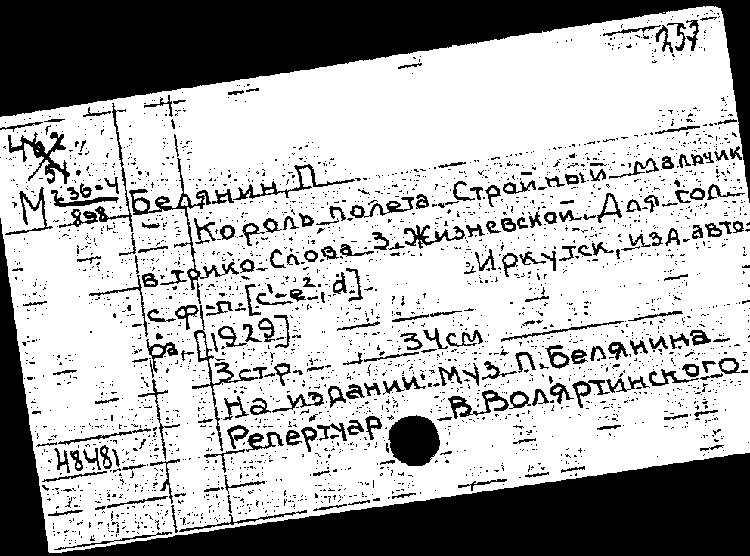 257
М 236-4
808
Белянин, П.
Король полета. Стройный мальчик
в трико. Слова З. Жизневской. Для гол.
с ф-п. [c¹-e², d]. Иркутск, изд. авто-
ра, [1929].
3 стр. 34 см
На издании: Муз. П. Белянина
Репертуар В. Воляртинского
48481